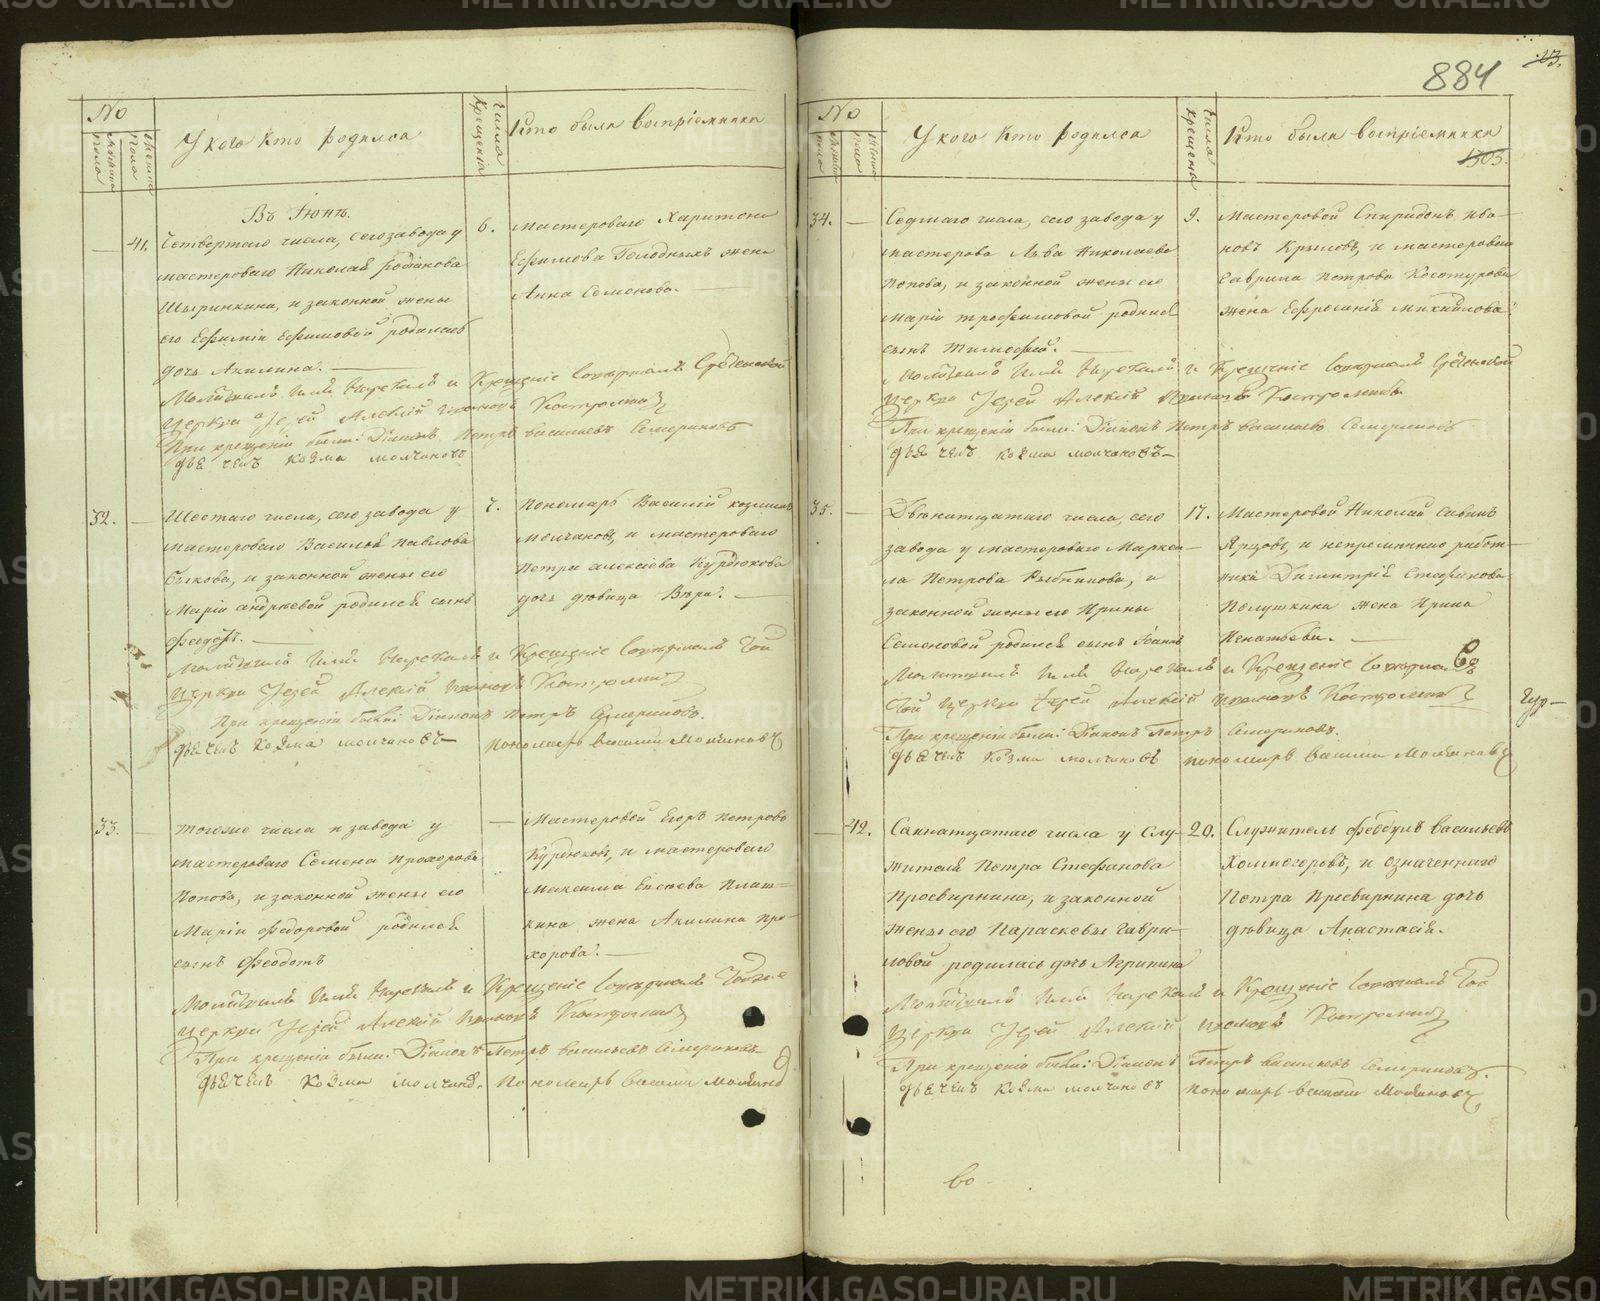 №
мужеска пола
женска пола
У кого кто родился
Числа крещенія
Кто были воспріемники
Въ Іюнѣ.
41. Четвертаго числа, сего завода у
мастероваго Николая Родіонова
Ширинкина, и законной жены
его Ефиміи Ефимовой родилась
дочь Акилина.
6. мастероваго Харитона
Ефимова Голодныхъ жена
Анна Семенова.
Молитвилъ имя нарекалъ и крещеніе совершалъ Срѣтенской
церкви Іерей Алексій Костроминъ
При крещеніи были: Діаконъ Петръ Васильевъ Семериковъ
дьячекъ Козма Молчановъ
32. Шестаго числа, сего завода у
мастероваго Василья Павлова
Быкова, и законной жены его
Маріи Андреевой родился сынъ
Феодоръ.
7. Пономарь Василій Козминъ
Молчановъ, и мастероваго
Петра Алексіева Курдюкова
дочь дѣвица Вѣра.
Молитвилъ имя нарекалъ и крещеніе совершалъ той
церкви Іерей Алексій Костроминъ
При крещеніи были: Діаконъ Петръ Семериковъ.
дьячекъ Козма Молчановъ
пономарь Василий Молчановъ
33. тогоже числа и завода у
мастероваго Семена Прохорова
Попова, и законной жены его
Маріи Федоровой родился
сынъ Феодотъ
Мастеровой Егоръ Петровъ
Курдюковъ, и мастероваго
Максима Евсѣева Плот-
кина жена Акилина Про-
хорова.
Молитвилъ имя нарекалъ и крещеніе совершалъ тойже
церкви Іерей Алексій Костроминъ
При крещеніи были: Діаконъ Петръ Васильевъ Семериковъ
дьячекъ Козма Молчановъ. Пономарь Василий Молчановъ
884
23.
№
мужеска пола
женска пола
У кого кто родился
Числа крещенія
Кто были воспріемники
1505.
34. Седмаго числа, сего завода у
мастерова Льва Николаева
Попова, и законной жены его
Маріи Трофимовой родился
сынъ Тимофей.
9. Мастеровой Спиридонъ Ива-
новъ Крыловъ, и мастероваго
Саврила Петрова Косотурова
жена Ефросинія Михайлова.
Молитвилъ имя нарекалъ и крещеніе совершалъ Срѣтенской
церкви Іерей Алексій Костроминъ
При крещеніи были: Діаконъ Петръ Васильевъ Семериковъ
дьячекъ Козма Молчановъ
35. Двѣнатцатаго числа, сего
завода у мастероваго Маркел-
ла Петрова Рыбникова, и
законной жены его Ирины
Семеновой родился сынъ Іоаннъ
17. Мастеровой Николай Савинъ
Ярцовъ, и непременнаго работ-
ника Димитрія Стефанова
Полушкина жена Ирина
Игнатьева.
Молитвилъ имя нарекалъ и крещеніе совершалъ
той церкви Іерей Алексій Костроминъ
При крещеніи были: Діаконъ Петръ Семериковъ.
дьячекъ Козма Молчановъ пономарь Василий Молчановъ
42. Сактатцатаго числа у Слу-
жителя Петра Стефанова
Просвирнина, и законной
жены его Параскевы Гаври-
ловой родилась дочь Агрипина
20. Служитель Феодулъ Васильевъ
Холмогоровъ, и означеннаго
Петра Просвирнина дочь
дѣвица Анастасія.
Молитвилъ имя нарекалъ и крещеніе совершалъ той
церкви Іерей Алексій Костроминъ
При крещеніи были: Діаконъ Петръ Васильевъ Семериковъ.
дьячекъ Козма Молчановъ пономарь Василий Молчановъ
METRIKI.GASO-URAL.RU